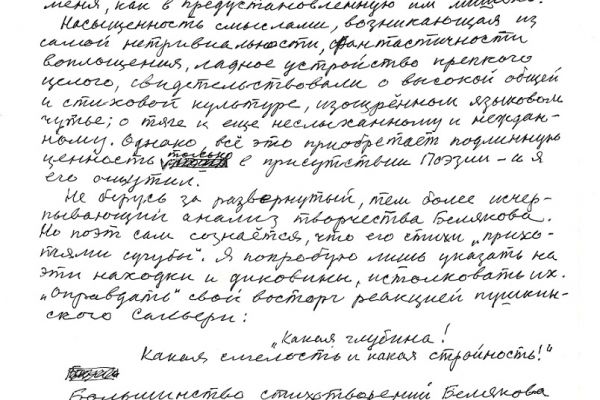 меня, как в предустановленную им мишень.
Насыщенность смыслами, возникающая из
самой нетривиальности, фантастичности
воплощения, ладное устройство крепкого
целого, свидетельствовали о высокой общей
и стиховой культуре, изощрённом языковом
чутье; о тяге к еще неслыханному и неждан-
ному. Однако всё это приобретает подлинную
ценность только в присутствии Поэзии – и я
его ощутил.
Не берусь за развернутый, тем более исчер-
пывающий анализ творчества Белякова.
Но поэт сам сознаётся, что его стихи „прихо-
тями сугубы“. Я попробую лишь указать на
эти находки и диковины, истолковать их.
„Оправдать“ свой восторг реакцией пушкин-
ского Сальери:
„Какая глубина!
Какая смелость и какая стройность!“
Большинство стихотворений Белякова